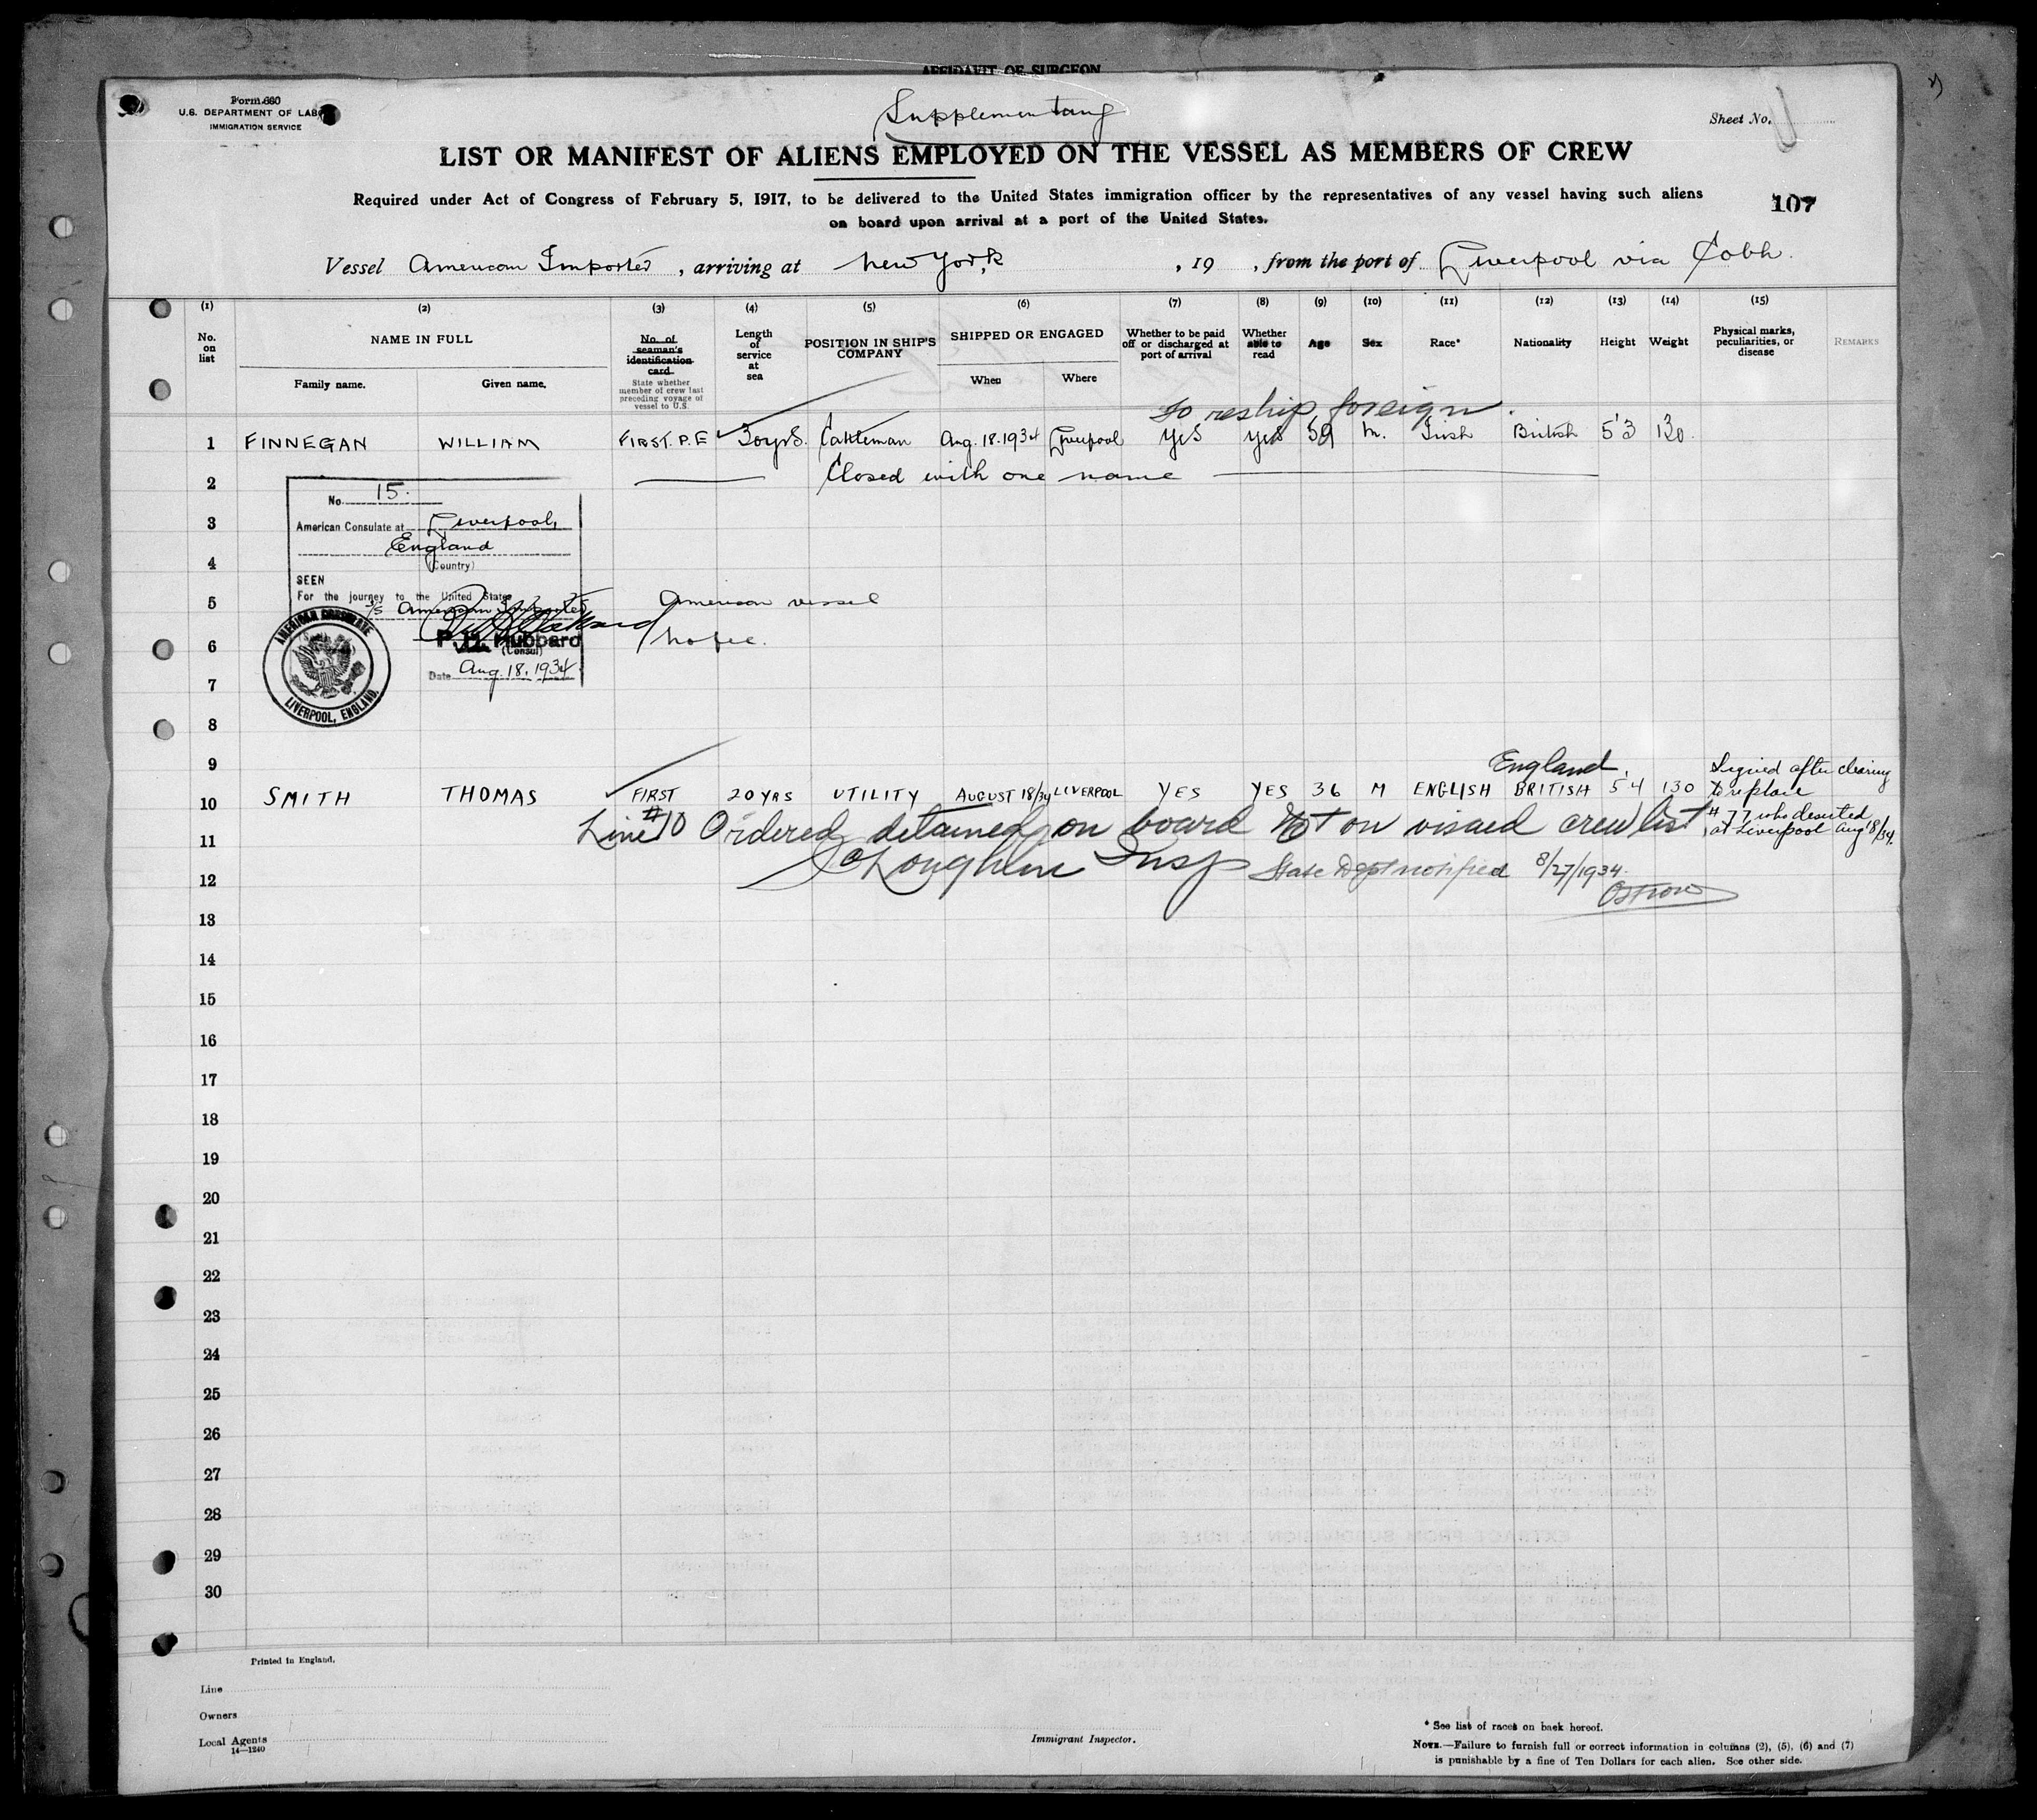 AFFIDAVIT OF SURGEON
Form 680
U.S. DEPARTMENT OF LABOR
IMMIGRATION SERVICE
Supplementary
Sheet No.
LIST OR MANIFEST OF ALIENS EMPLOYED ON THE VESSEL AS MEMBERS OF CREW
Required under Act of Congress of February 5, 1917, to be delivered to the United States immigration officer by the representatives of any vessel having such aliens
on board upon arrival at a port of the United States.
107
Vessel American Importer, arriving at New York, 19 , from the port of Liverpool via Cobh.
(1) (2) (3) (4) (5) (6) (7) (8) (9) (10) (11) (12) (13) (14) (15)
No. on list
NAME IN FULL
Family name. Given name.
No. of seaman's identification card.
State whether member of crew last preceding voyage of vessel to U.S.
Length of service at sea
POSITION IN SHIP'S COMPANY
SHIPPED OR ENGAGED
When Where
Whether to be paid off or discharged at port of arrival
Whether able to read
Age
Sex
Race*
Nationality
Height
Weight
Physical marks, peculiarities, or disease
REMARKS
to reship foreign.
1 FINNEGAN WILLIAM FIRST. P.E 30yrs. Cattleman Aug. 18. 1934 Liverpool yes yes 59 M. Irish British 5'3 130.
2 Closed with one name
No. 15.
3
American Consulate at Liverpool,
England
4
(Country)
SEEN
For the journey to the United States
5
S/S American Importer American vessel
6
P. H. Hubbard No fee.
Vice (Consul)
Date Aug. 18. 1934
AMERICAN CONSULATE
LIVERPOOL, ENGLAND.
7
8
9
England.
10 SMITH THOMAS FIRST 20 YRS UTILITY AUGUST 18/34 LIVERPOOL YES YES 36 M ENGLISH BRITISH 5 4 130
Signed after clearing
to replace
# 77 who deserted
at Liverpool Aug 18/34.
Line #10 Ordered detained on board Not on visaed crew list
11
Insp State Dept notified 8/27/1934.
12
Ostrow
13
14
15
16
17
18
19
20
21
22
23
24
25
26
27
28
29
30
Printed in England.
Line
Owners
Local Agents
14—1240
Immigrant Inspector.
* See list of races on back hereof.
NOTE.—Failure to furnish full or correct information in columns (2), (5), (6) and (7)
is punishable by a fine of Ten Dollars for each alien. See other side.